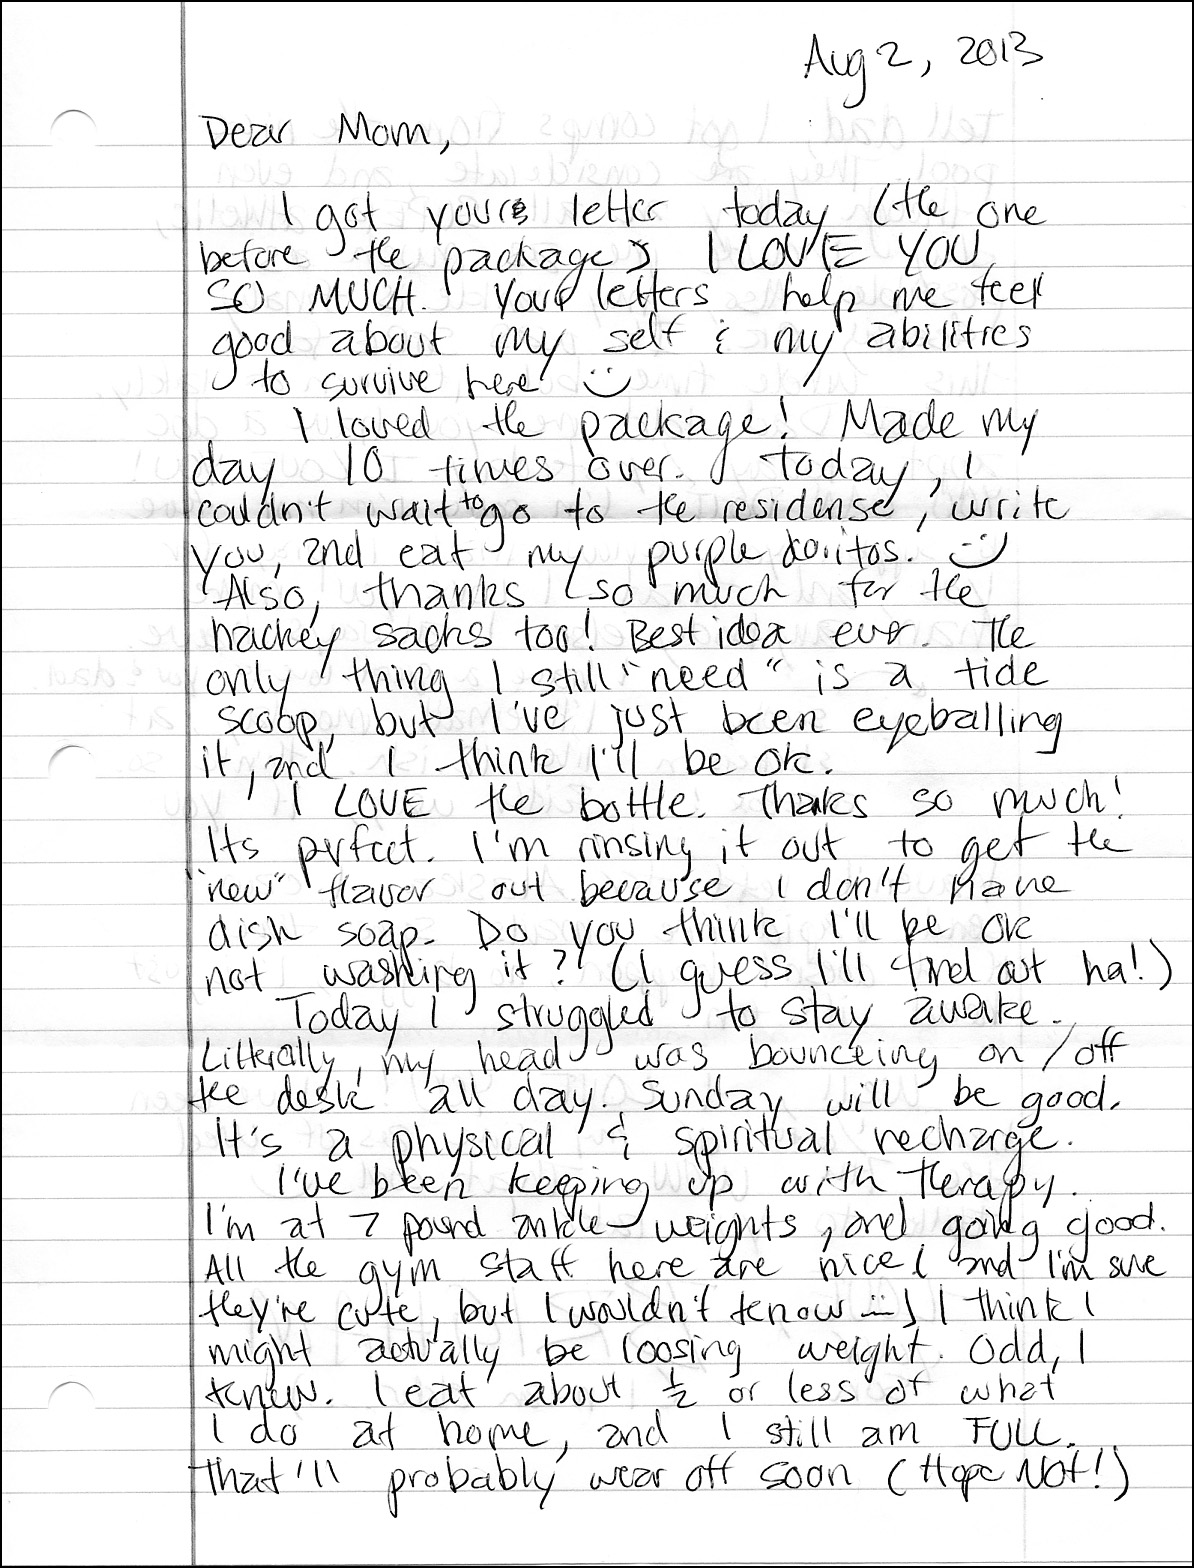 Aug 2, 2013
Dear Mom,
I got your letter today (the one
before the package). I LOVE YOU
SO MUCH. Your letters help me feel
good about my self & my abilities
to survive here! :)
I loved the package! Made my
day 10 times over. Today, I
couldn't wait to go to the residense, write
you, and eat my purple doritos. :)
Also, thanks so much for the
hackey sacks too! Best idea ever. The
only thing I still "need" is a tide
scoop, but I've just been eyeballing
it, and I think I'll be ok.
I LOVE the bottle. Thanks so much!
Its perfect. I'm rinsing it out to get the
"new" flavor out because I don't have
dish soap. Do you think I'll be ok
not washing it? (I guess I'll find out ha!)
Today I struggled to stay awake.
Litterally, my head was bounceing on/off
the desk all day. Sunday will be good.
It's a physical & spiritual recharge.
I've been keeping up with therapy.
I'm at 7 pound ankle weights, and going good.
All the gym staff here are nice (and I'm sure
they're cute, but I wouldn't know :) I think I
might actually be loosing weight. Odd, I
know. I eat about 1/2 or less of what
I do at home, and I still am FULL.
That'll probably wear off soon (Hope Not!)